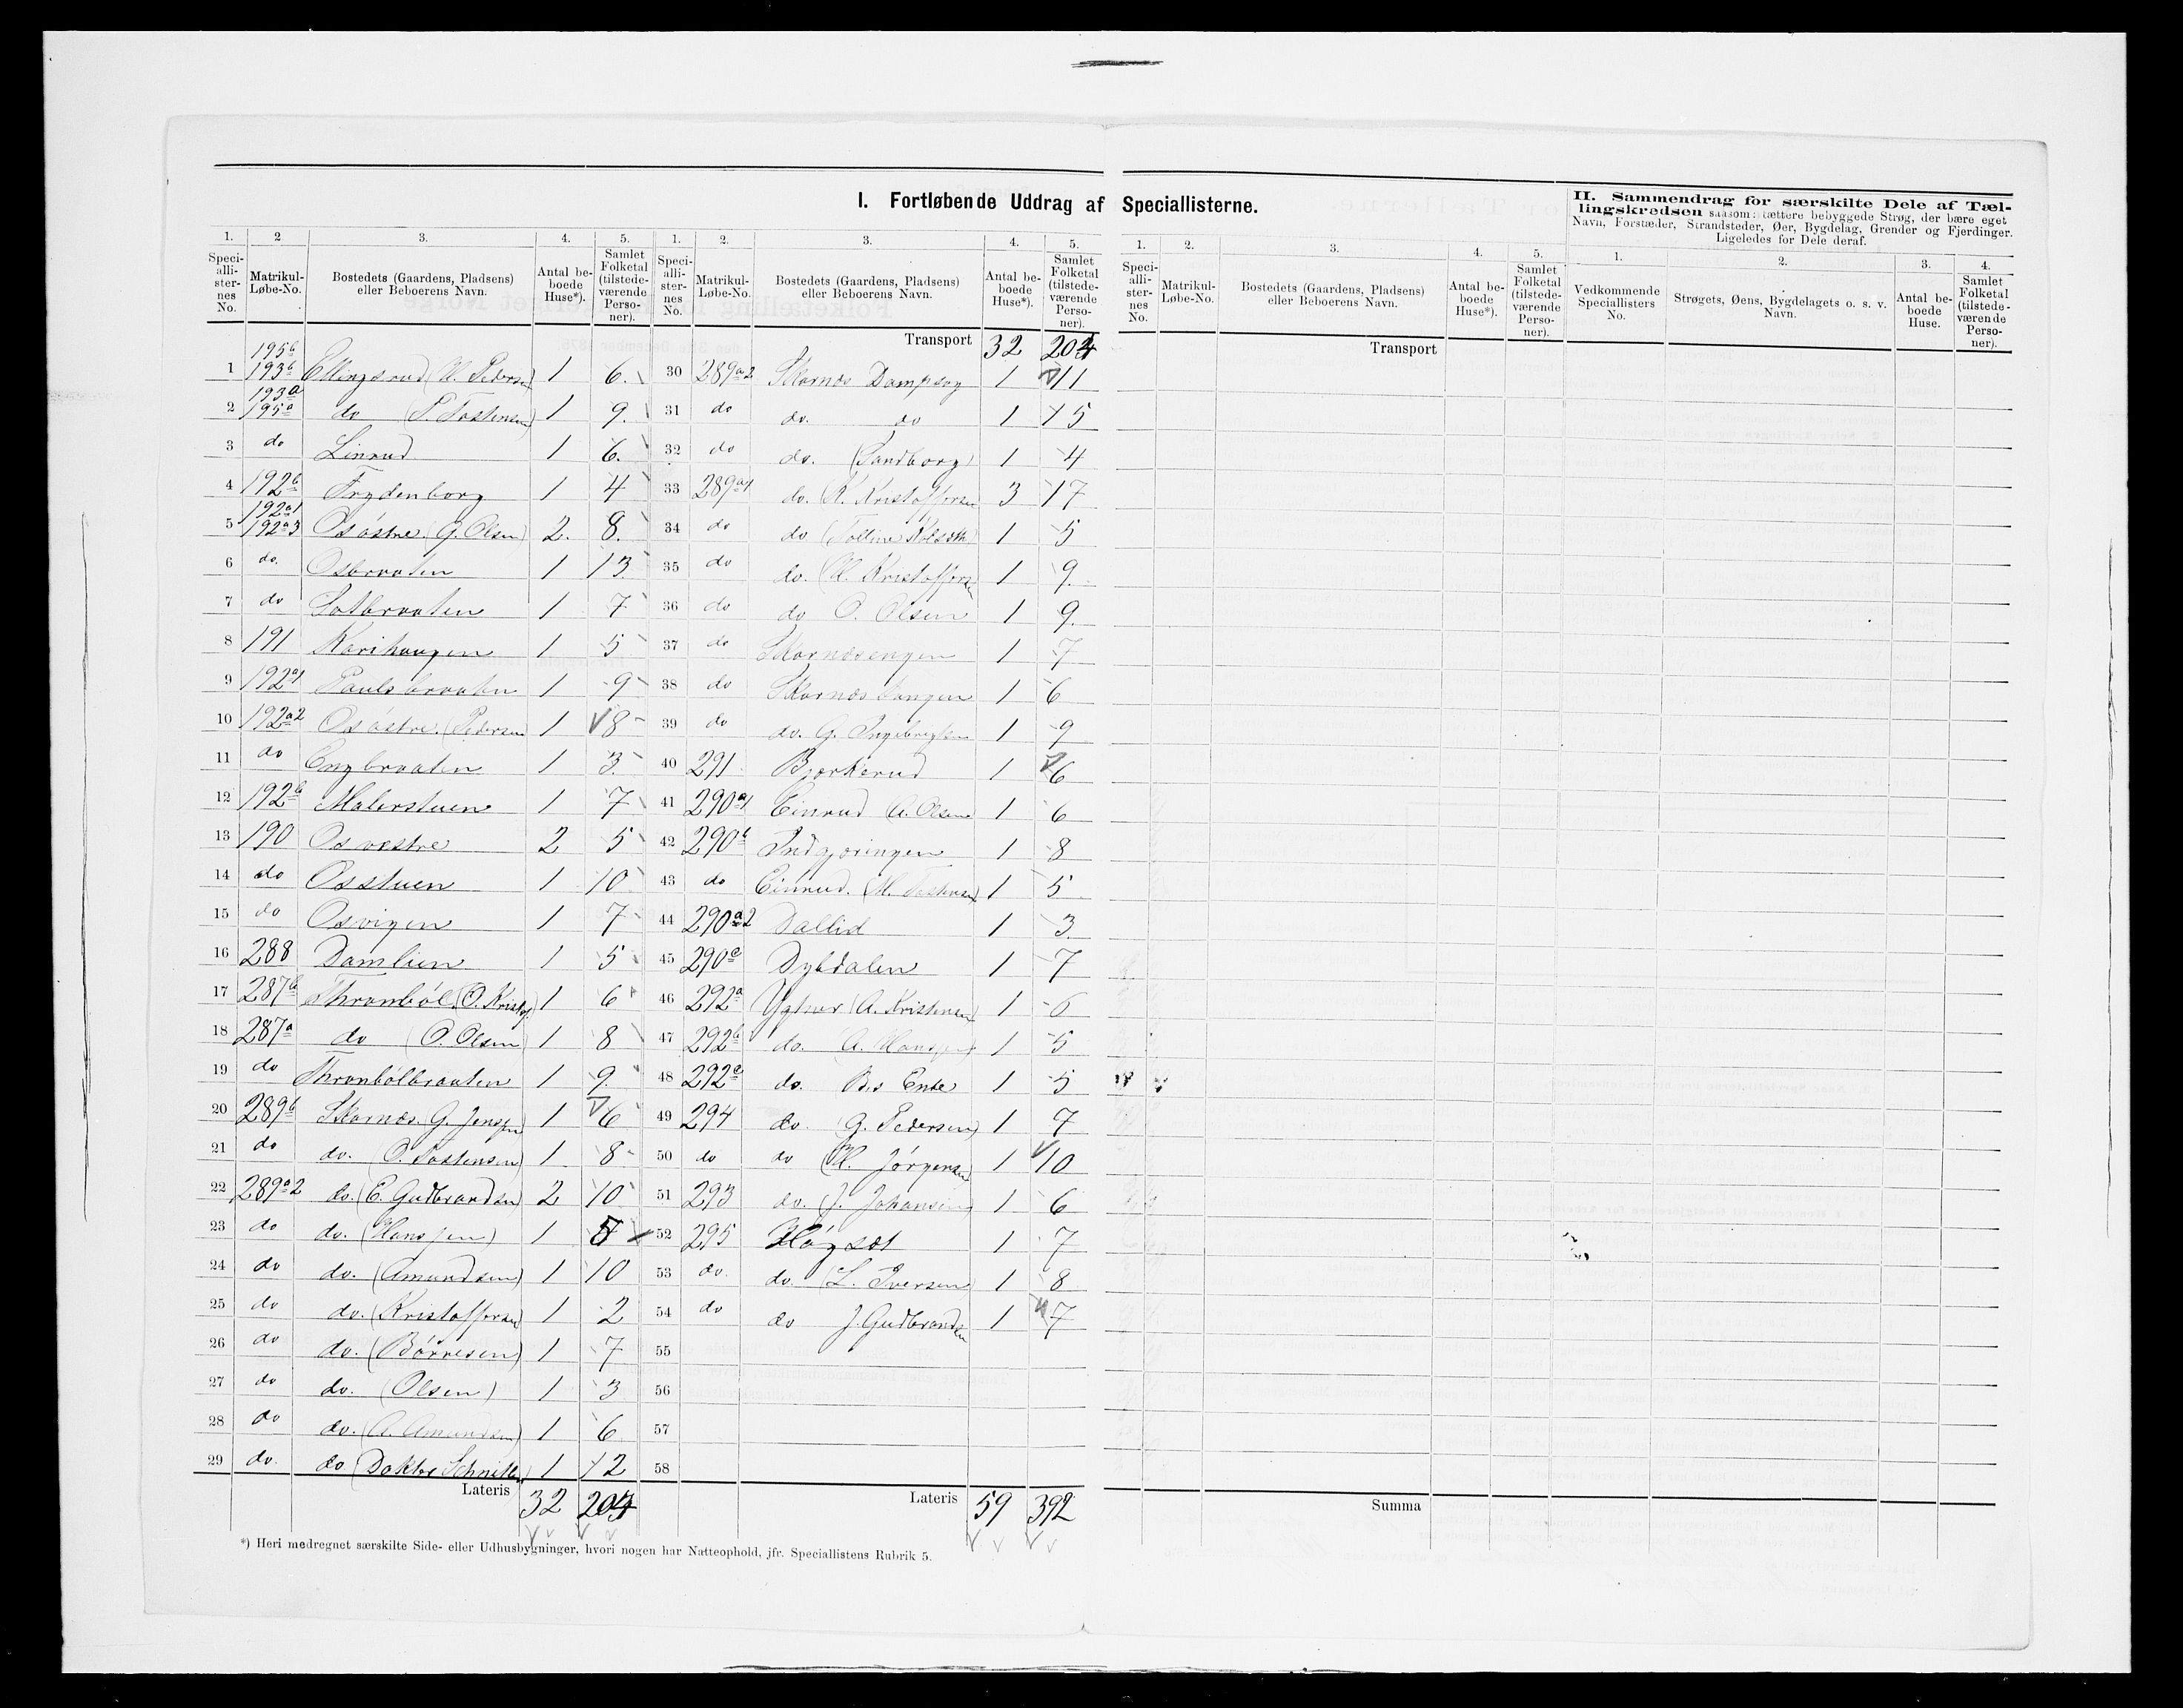 I. Fortløbende Uddrag af Speciallisterne.
II. Sammendrag for særskilte Dele af Tæl-
lingskredsen saasom: tættere bebyggede Strøg, der bære eget
Navn, Forstæder, Strandsteder, Øer, Bygdelag, Grender og Fjerdinger.
Ligeledes for Dele deraf.
1. 2 3. 4. 5. 1. 2. 3. 4. 5. 1. 2. 3. 4. 5. 1. 2. 3. 4.
Speci-alli-ster-nes No. Matrikul-Løbe-No. Bostedets (Gaardens, Pladsens) eller Beboerens Navn. Antal be-boede Huse*). Samlet Folketal (tilstede-værende Perso-ner).
Speci-alli-ster-nes No. Matrikul-Løbe-No. Bostedets (Gaardens, Pladsens) eller Beboerens Navn. Antal be-boede Huse*). Samlet Folketal (tilstede-værende Perso-ner).
Speci-alli-ster-nes No. Matrikul-Løbe-No. Bostedets (Gaardens, Pladsens) eller Beboerens Navn. Antal be-boede Huse*). Samlet Folketal (tilstede-værende Perso-ner).
Vedkommende Speciallisters No. Strøgets, Øens, Bygdelagets o. s. v. Navn. Antal be-boede Huse. Samlet Folketal (tilstede-værende Perso-ner).
1 195b 193b Ellingsrud (H. Pedersen) 1 6.
2 193a 195a do (P. Tostensen) 1 9.
3 do Linrud 1 6.
4 192b Frydenborg 1 4
5 192a1 192a3 Os östre (G. Olsen) 2. 8.
6 do. Osbraaten 1 13
7 do Sotbraaten 1 7
8 191 Karihaugen 1 5
9 192a1 Paulsbraaten 1 9
10 192a2 Os östre. (Pedersen 1 8
11 do Engbraaten 1 3.
12 192b Malerstuen 1 7
13 190 Os vestre 2 5
14 do Osstuen 1 10
15 do Osvigen 1 7
16 288 Damlien 1 5
17 287b Thronböl (O. Kristof. 1 6
18 287a do (O. Olsen) 1 8
19 do Thronbölbraaten 1 9.
20 289b Skarnes. G. Jenssen) 1 6
21 do do. (O. Tostensen) 1 8
22 289a2 do. (E. Gudbrandsen) 2 10
23 do do. (Hanssen) 1
24 do do. (Amundsen) 1 10
25 do do. (Kristoffersen) 1 2
26 do do. (Börresen) 1 7
27 do do. (Olsen) 1 3
28 do do. (A. Amundsen) 1 6
29 do. do (Doktor Schnitler) 1 12
Lateris 32 204
Transport 32 204
30 289a2 Skarnes Dampsag 1 11
31 do do. do 1 15
32 do do. (Sandborg) 1 4
33 289a1 do. (K. Kristoffersen 3 17
34 do do 1 5
35 do do. (H. Kristoffersen 1 9.
36 do do O. Olsen 1 9.
37 do Skarnesengen 1 7
38 do Skarnes 1 6
39 do do. G. Ingebrigtsen 1 9
40 291 Bjørkerud 1 6
41 290a1 Einrud (A. Olsen 1 6
42 290b Indgjæringen 1 8
43 do Einrud. 1 5
44 290a2 Dallid 1 3
45 290c Dybdalen 1 7
46 292a (A. Kristensen) 1 6
47 292b do. (A. Hanssen) 1 5
48 292c do. Enke 1 5
49 294 do. (G. Pedersen) 1 7
50 do do (H. Jörgensen) 1 10
51 293 do. (J. Johansen) 1 6
52 295 Högset 1 7
53 do. do. (L. Iversen) 1 8
54 do do J. Gudbrandsen 1 7
55
56
57
58
Lateris 59 392
Transport
Summa
*) Heri medregnet særskilte Side- eller Udhusbygninger, hvori nogen har Natteophold, jfr. Speciallistens Rubrik 5.